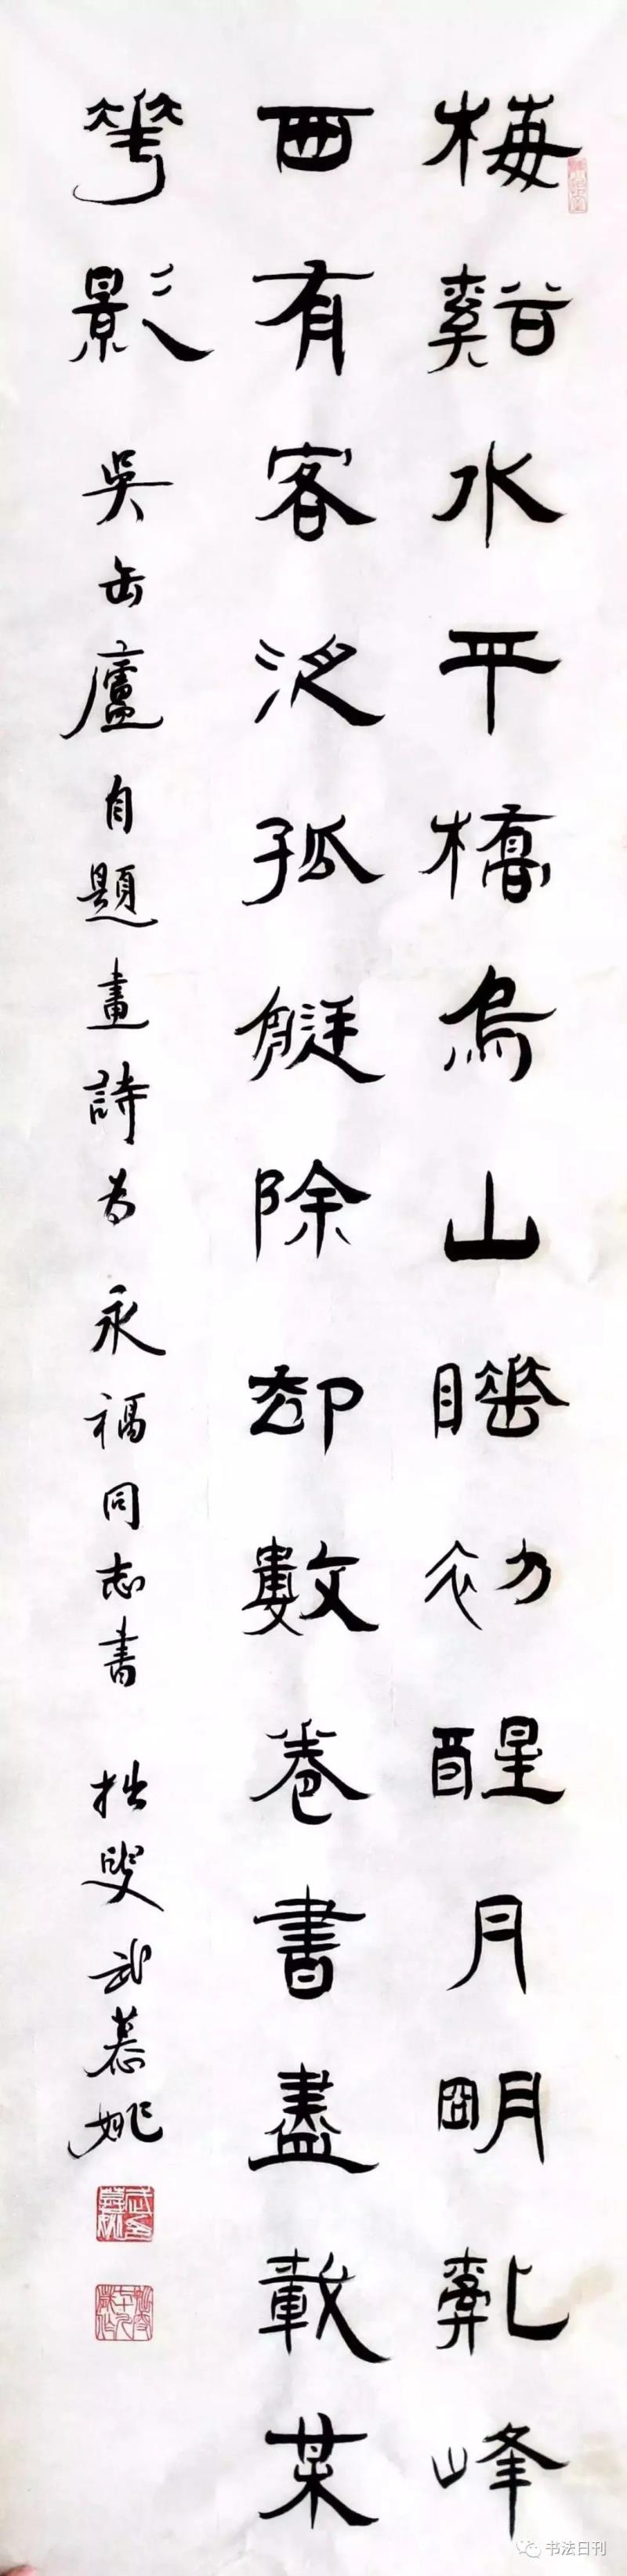 梅谿水平橋烏山睡初醒月明亂峰
西有客泛孤艇除却數卷書盡載某
華影 吳缶廬自題畫詩為永福同志書 拙叟武慕姚
书法日刊